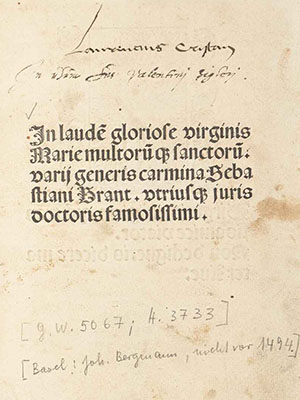 Laurencius Cristan
In usum Valentinj
In laudē gloriose virginis
Marie multorū qꝫ sanctorū .
varij generis carmina Seba
stiani Brant . vtriusqꝫ juris
doctoris famosissimi .
[G.W. 5067; H. 3733]
[Basel: Joh. Bergmann, nicht vor 1494.]